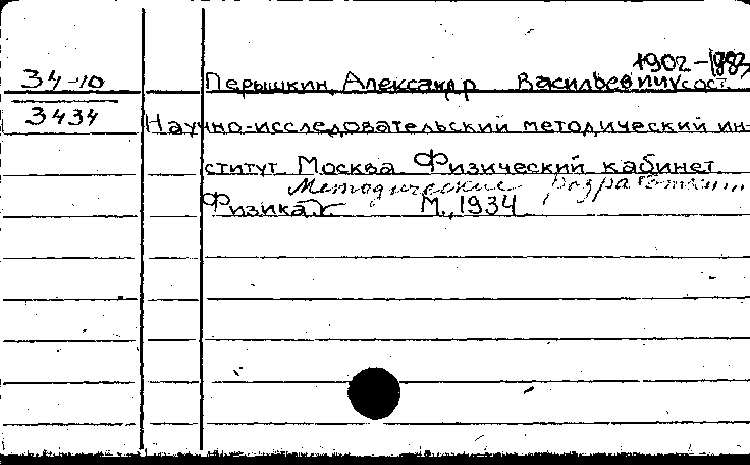 1902-1983
34-10 Перышкин, Александр Васильевич сост.
3434 Научно-исследовательский методический ин-
ститут. Москва. Физический кабинет.
Методические разработки...
Физика. М., 1934